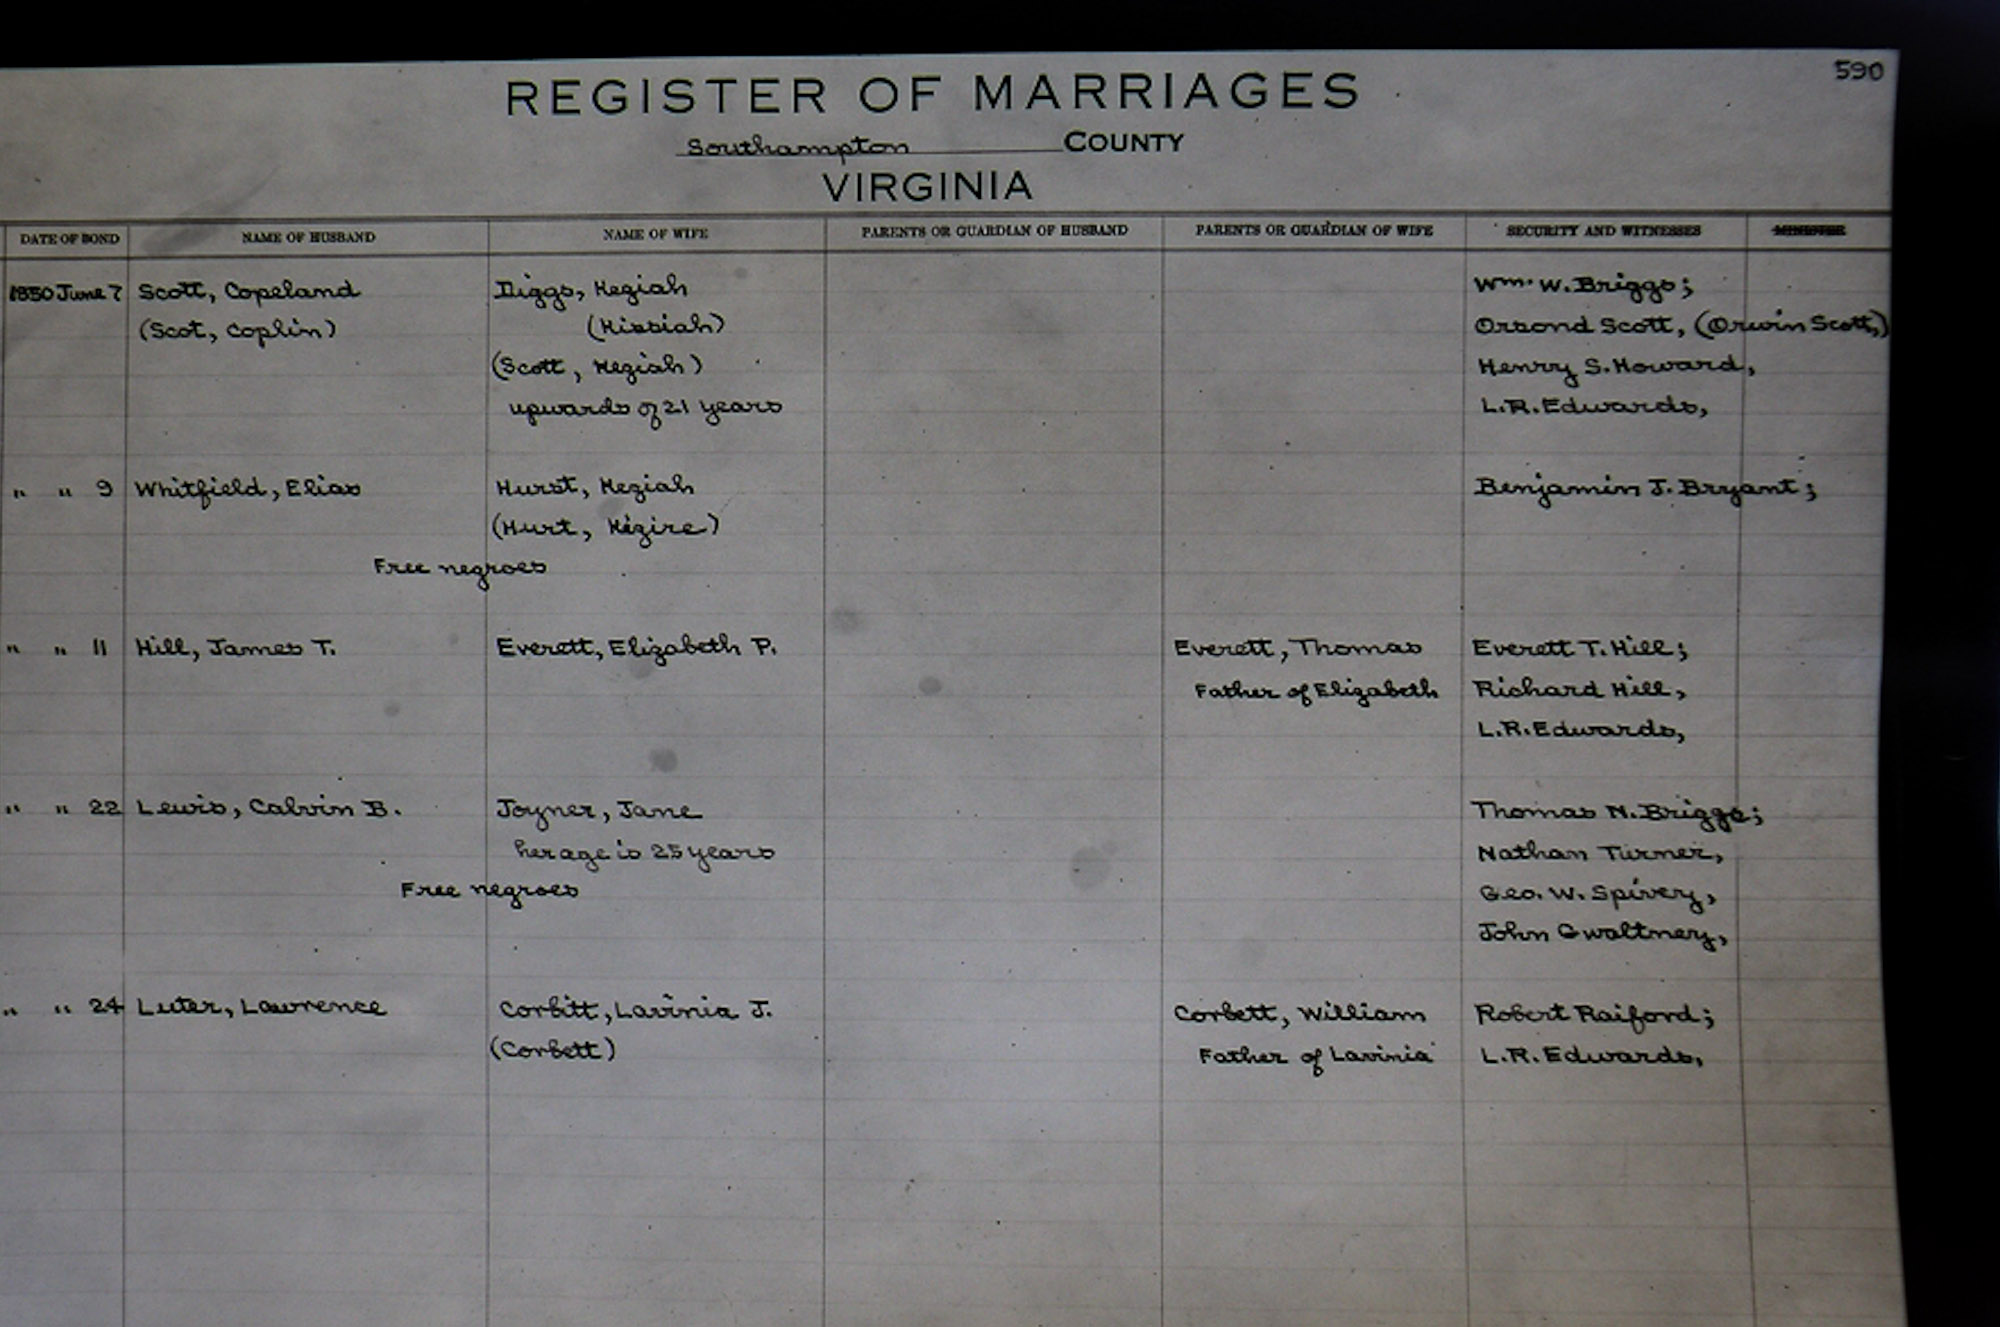 590
REGISTER OF MARRIAGES
Southampton COUNTY
VIRGINIA
DATE OF BOND NAME OF HUSBAND NAME OF WIFE PARENTS OR GUARDIAN OF HUSBAND PARENTS OR GUARDIAN OF WIFE SECURITY AND WITNESSES MINISTER
1850 June 7 Scott, Copeland Diggs, Keziah Wm. W. Briggs;
(Scot, Coplin) (Kissiah) Orsond Scott, (Orwin Scott,)
(Scott, Keziah) Henry S. Howard,
upwards of 21 years L.R. Edwards,
" " 9 Whitfield, Elias Hurst, Keziah Benjamin J. Bryant;
(Hurt, Kizire)
Free negroes
" " 11 Hill, James T. Everett, Elizabeth P. Everett, Thomas Everett T. Hill;
Father of Elizabeth Richard Hill,
L.R. Edwards,
" " 22 Lewis, Calvin B. Joyner, Jane Thomas N. Briggs;
her age is 25 years Nathan Turner,
Free negroes Geo. W. Spivey,
John Gwaltney,
" " 24 Luter, Lawrence Corbitt, Lavinia J. Corbett, William Robert Raiford;
(Corbett) Father of Lavinia L.R. Edwards,